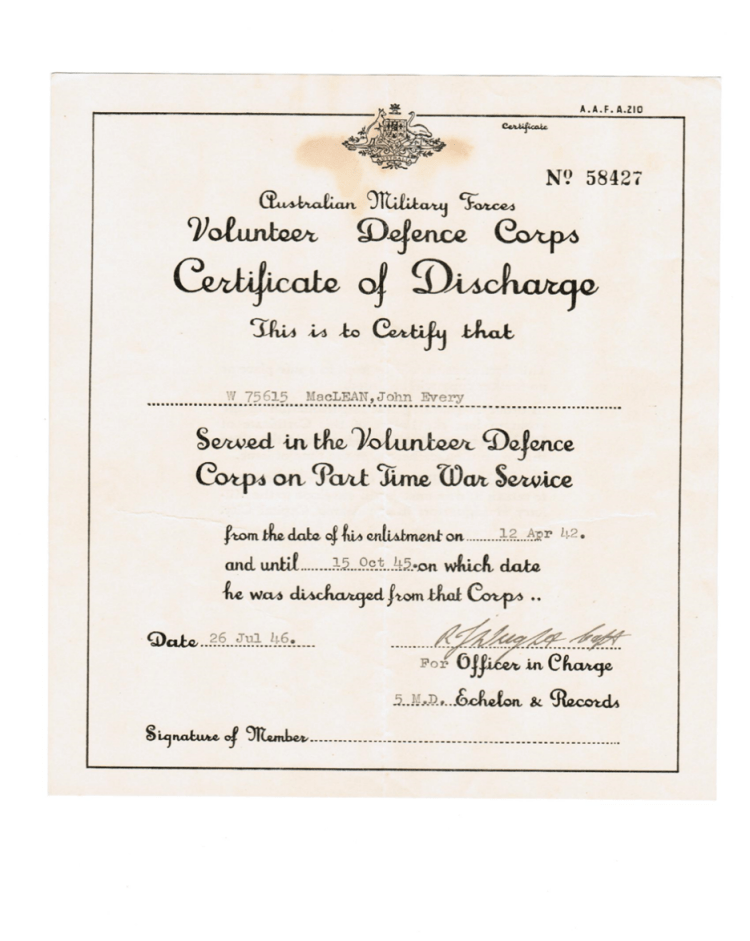 A.A.F. A.210
Certificate
Nº 58427
AUSTRALIA
Australian Military Forces
Volunteer Defence Corps
Certificate of Discharge
This is to Certify that
W 75615 MacLEAN,John Every
Served in the Volunteer Defence
Corps on Part Time War Service
from the date of his enlistment on 12 Apr 42.
and until 15 Oct 45. on which date
he was discharged from that Corps ..
Date 26 Jul 46.
For Officer in Charge
5 M.D. Echelon & Records
Signature of Member